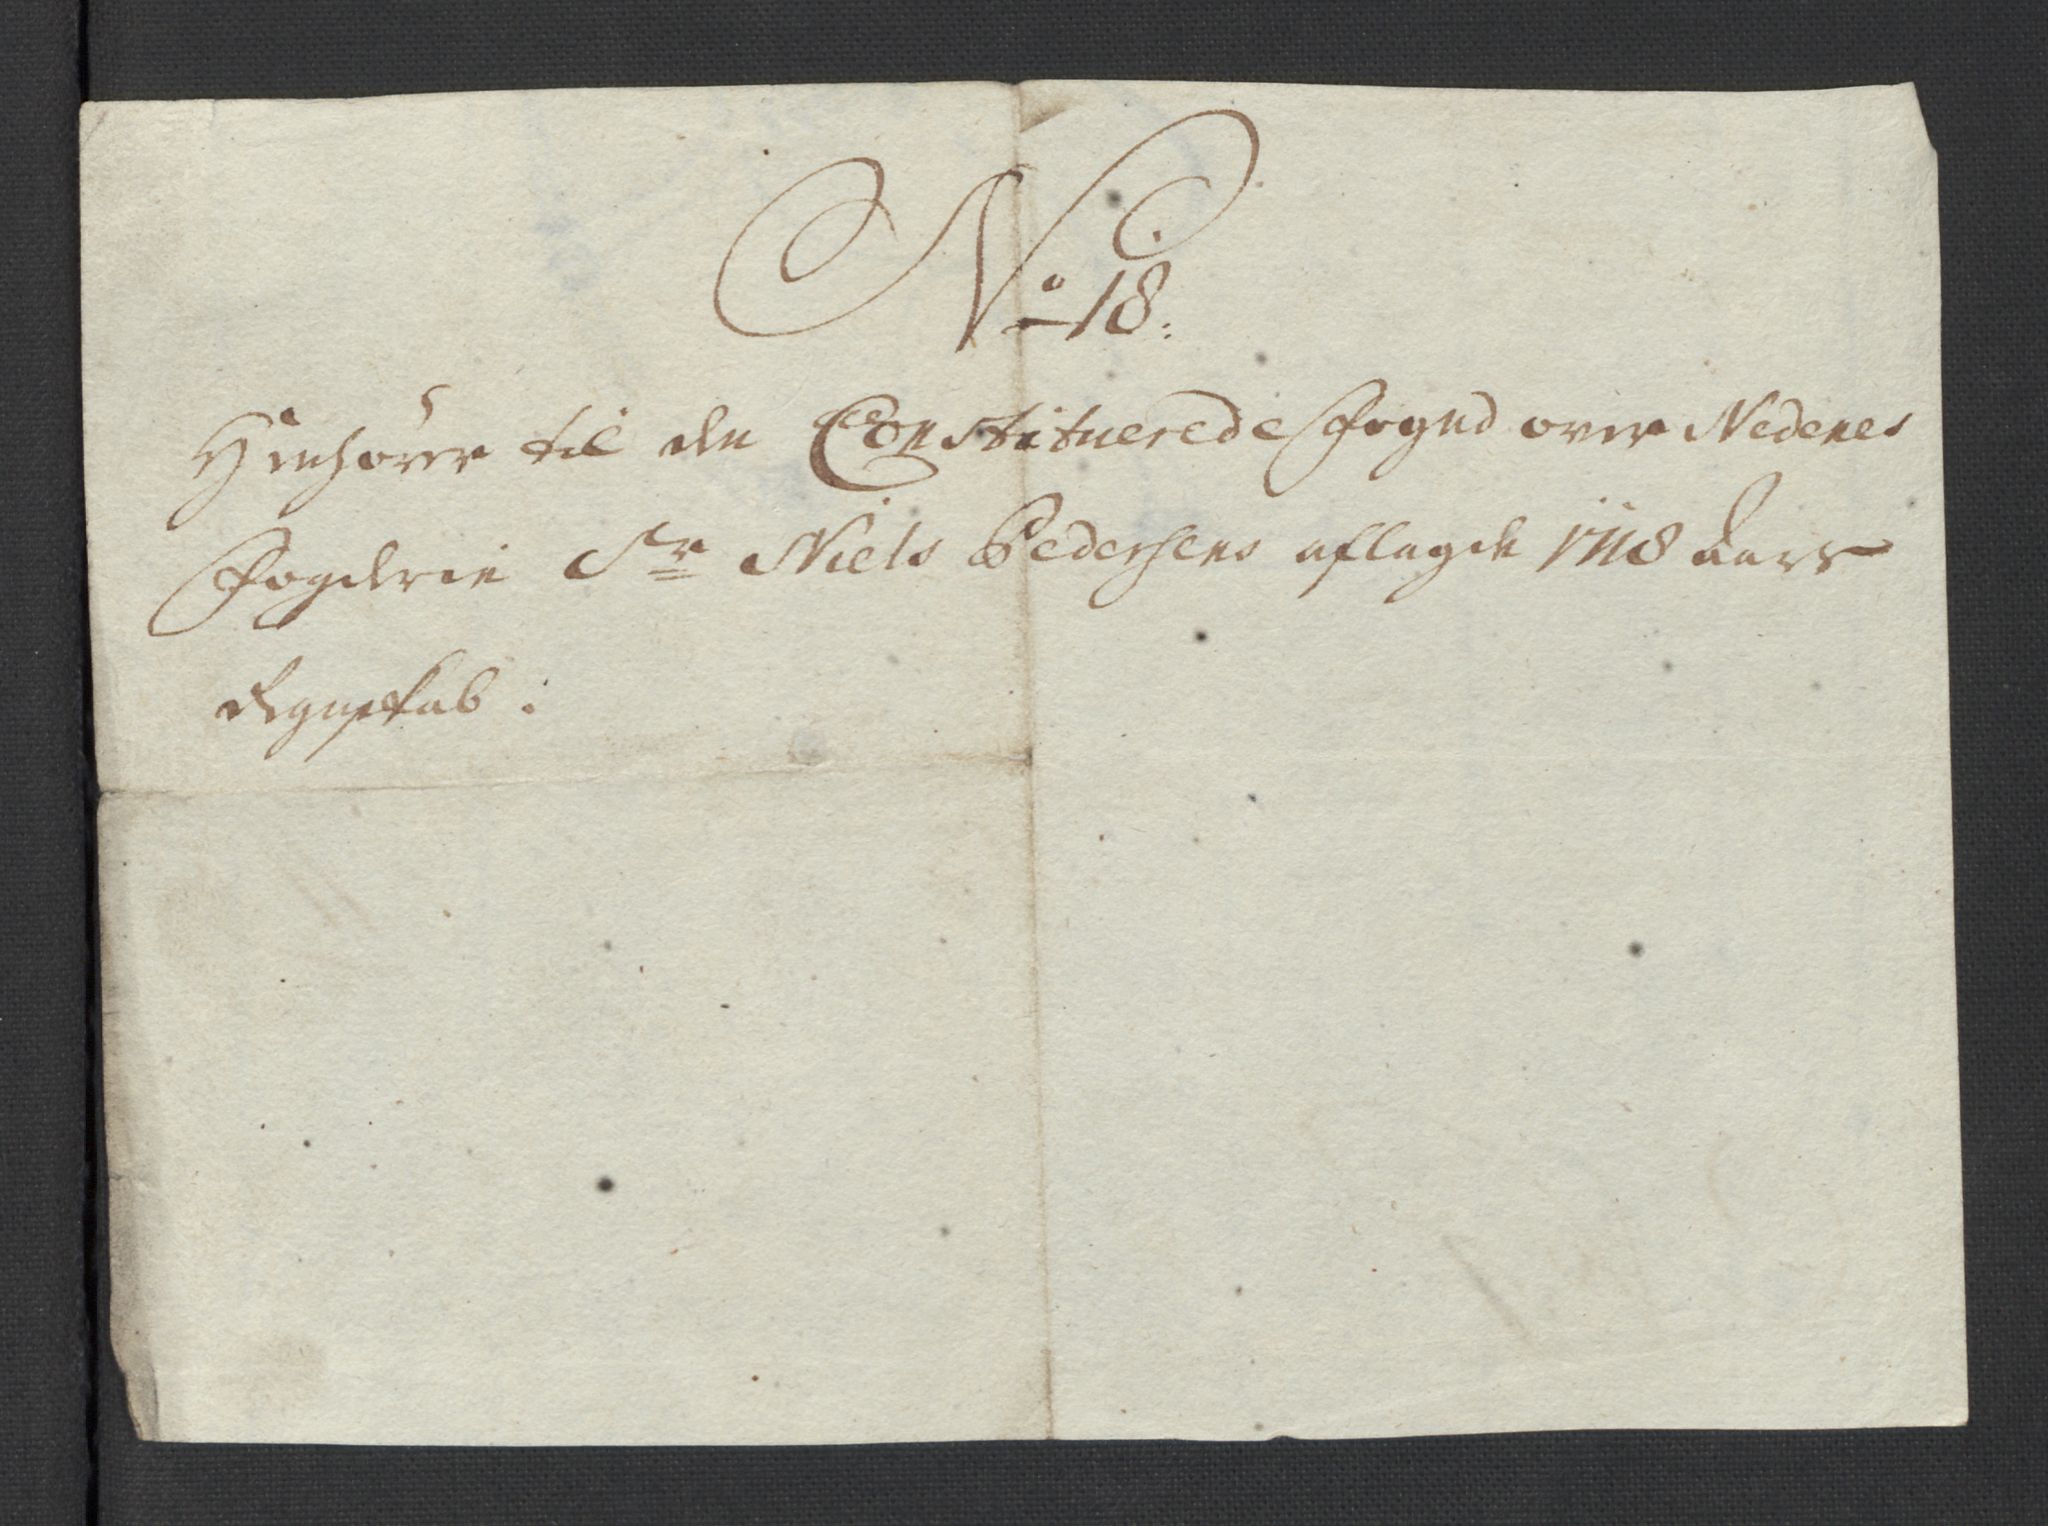 No 18.
Henhörer til den Constituerede Fogud over Nedenes
Fogderie Sr Niels Pedersens aflagde 1718 Aars
Regnskab: